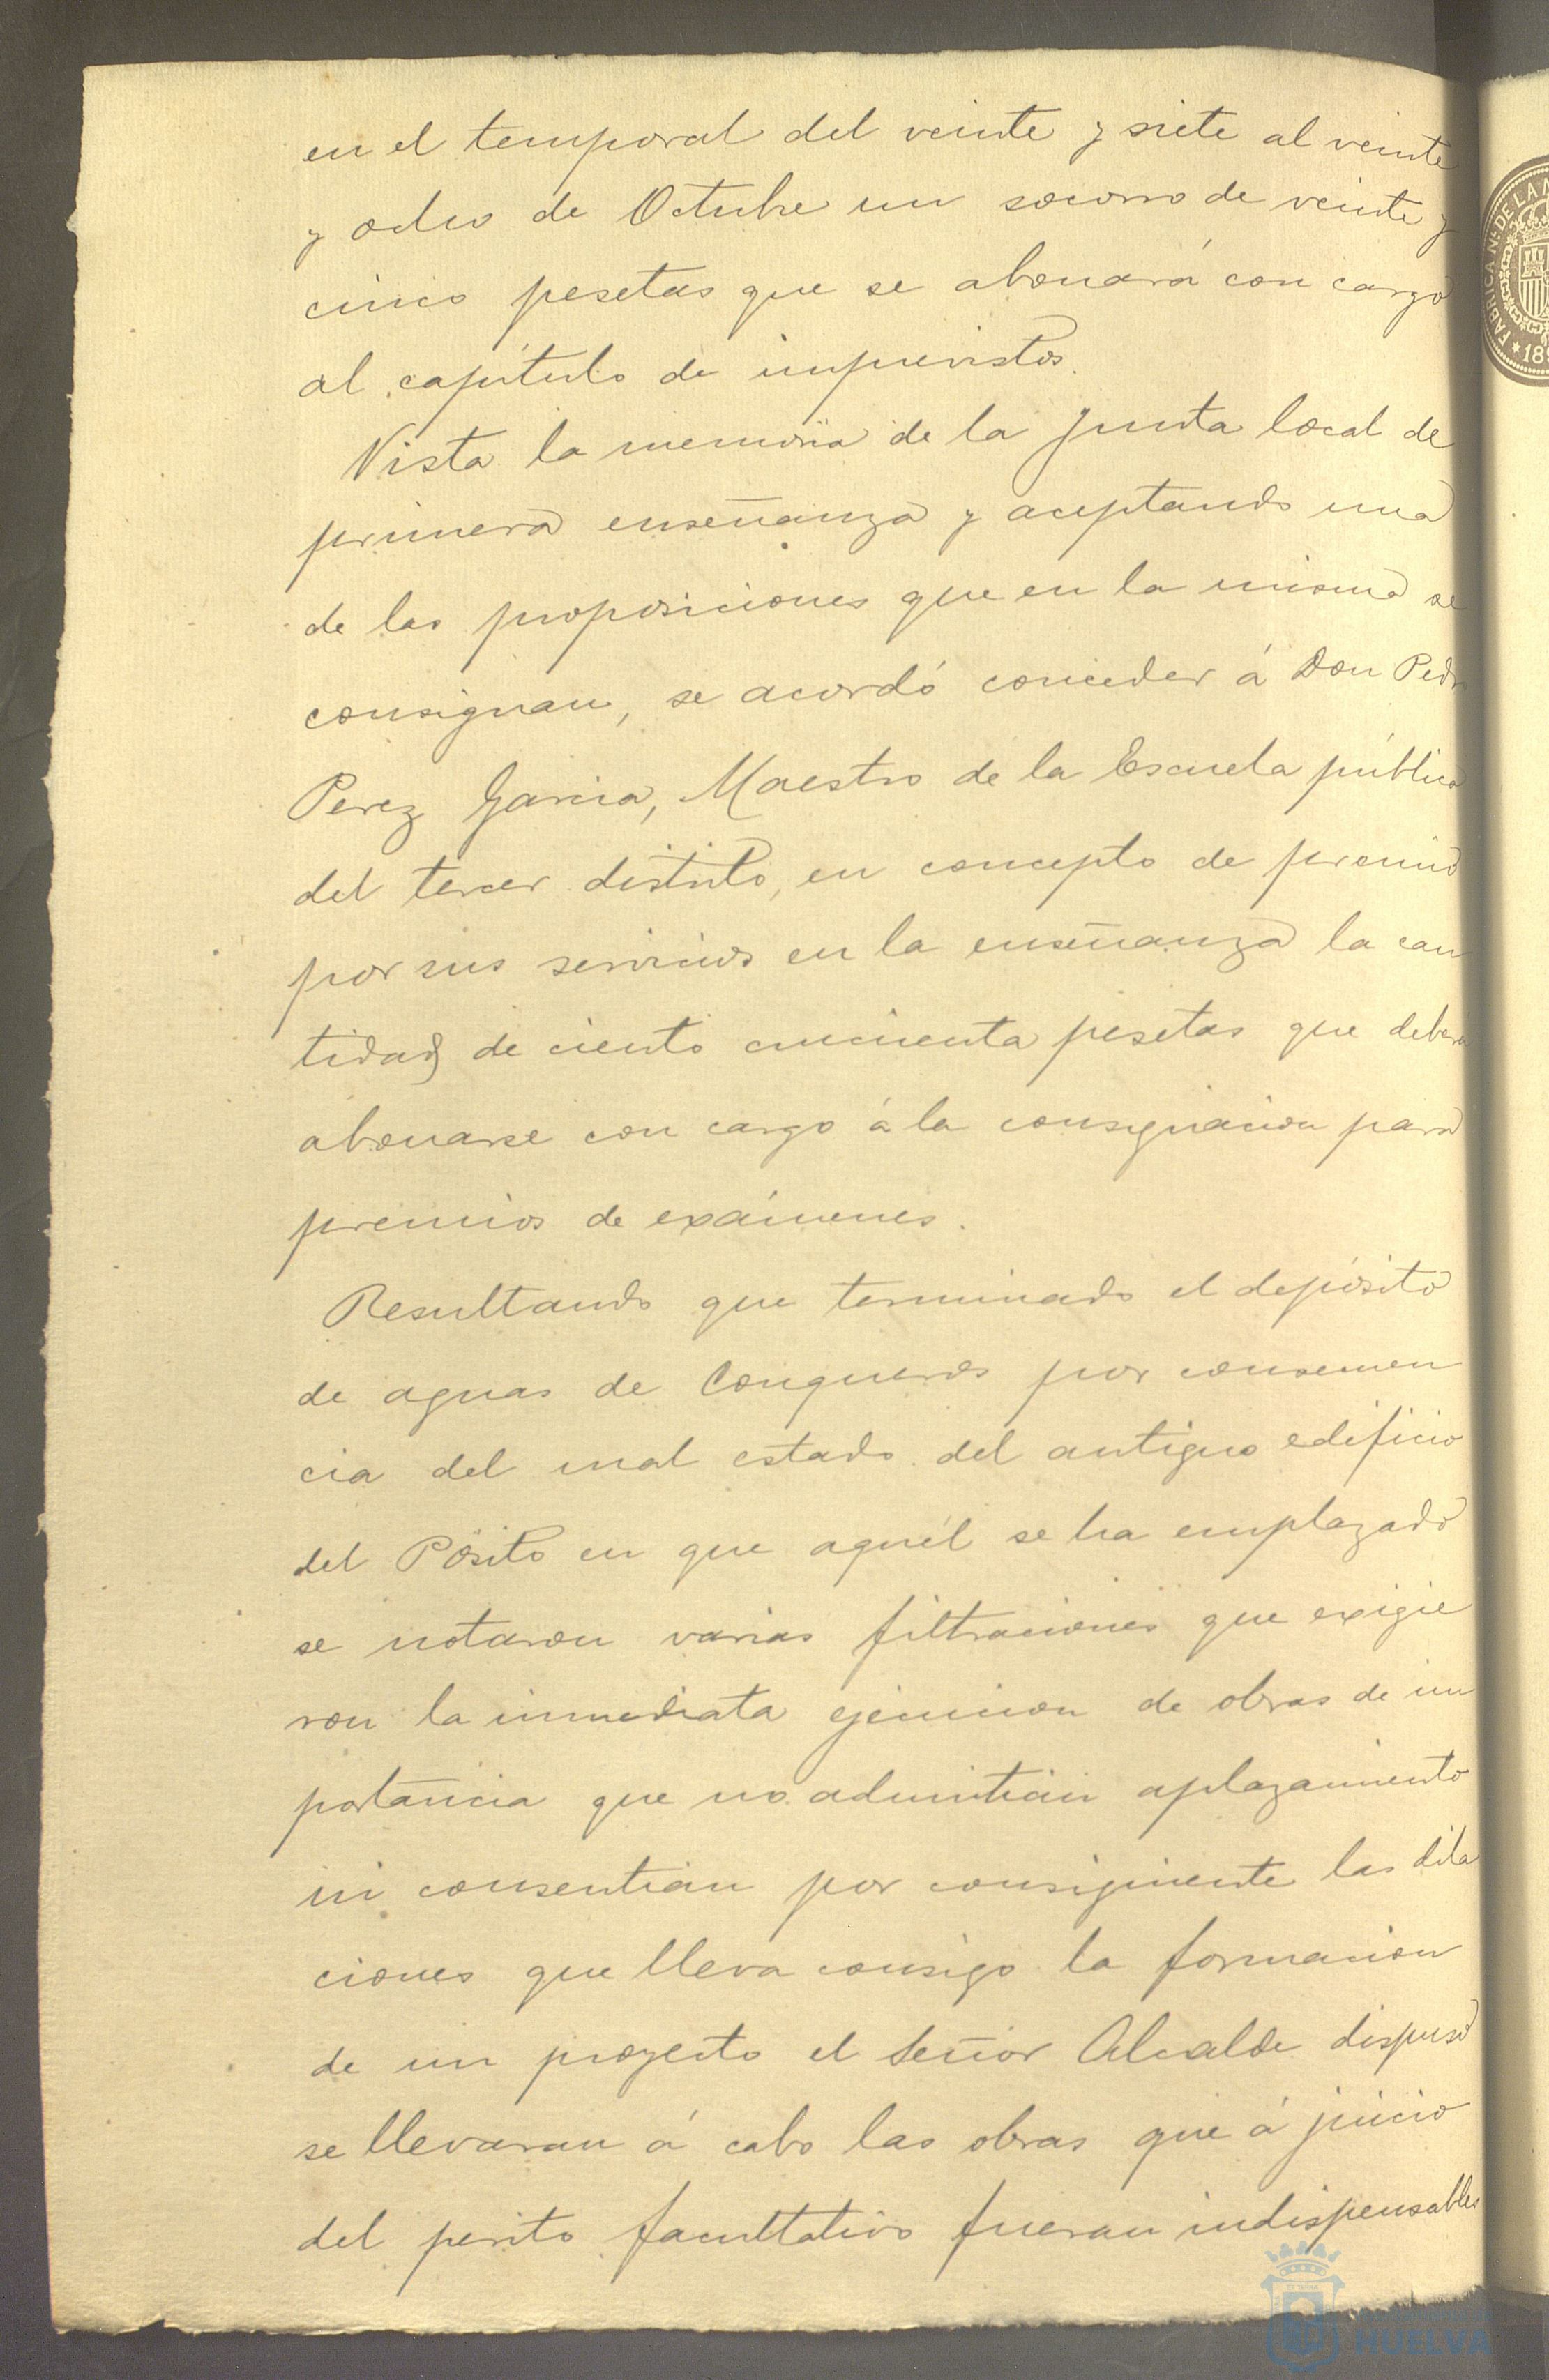 en el temporal del veinte y siete al veinte
y ocho de Octubre un socorro de veinte y
cinco pesetas que se abonará con cargo
al capítulo de imprevistos.
Vista la memoria de la Junta local de
primera enseñanza y aceptando una
de las proposiciones que en la misma se
consignan, se acordó conceder á Don Pedro
Perez Garcia, Maestro de la Escuela pública
del tercer distrito, en concepto de premio
por sus servicios en la enseñanza la can
tidad de ciento cincuenta pesetas que deberá
abonarse con cargo á la consignacion para
premios de exámenes.
Resultando que terminado el depósito
de aguas de Conqueros por consecuen
cia del mal estado del antiguo edificio
del Pósito en que aquél se ha emplazado
se notaron varias filtraciones que exigie
ron la inmediata ejecucion de obras de im
portancia que no admitían aplazamiento
ni consentían por consiguiente las dila
ciones que lleva consigo la formacion
de un proyecto el Señor Alcalde dispuso
se llevaran á cabo las obras que á juicio
del perito facultativo fueran indispensables
FABRICA NL. DE LA
HUELVA